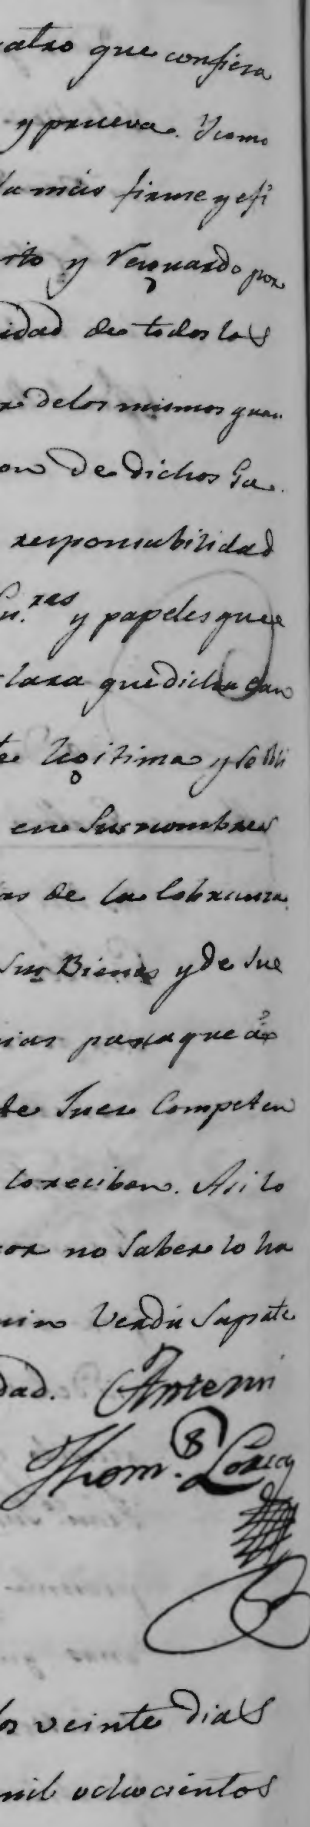 atro que confiera
y prueva. Y como
la mas firme y efi
rito y Resguardo por
idad de todos los
r de los mismos gran
on de dichos Ga
responsabilidad
ras y papeles que
clara que dicha can
te legitima y se obli
en sus nombres
as de la cobranza
Sus Bienes y de sus
cias para que á
te Juez Competen
lo reciban. Asi lo
por no saber lo ha
Verdu Sapate
dad. Antemi
Thom.s Lorca
os veinte dias
mil ochocientos